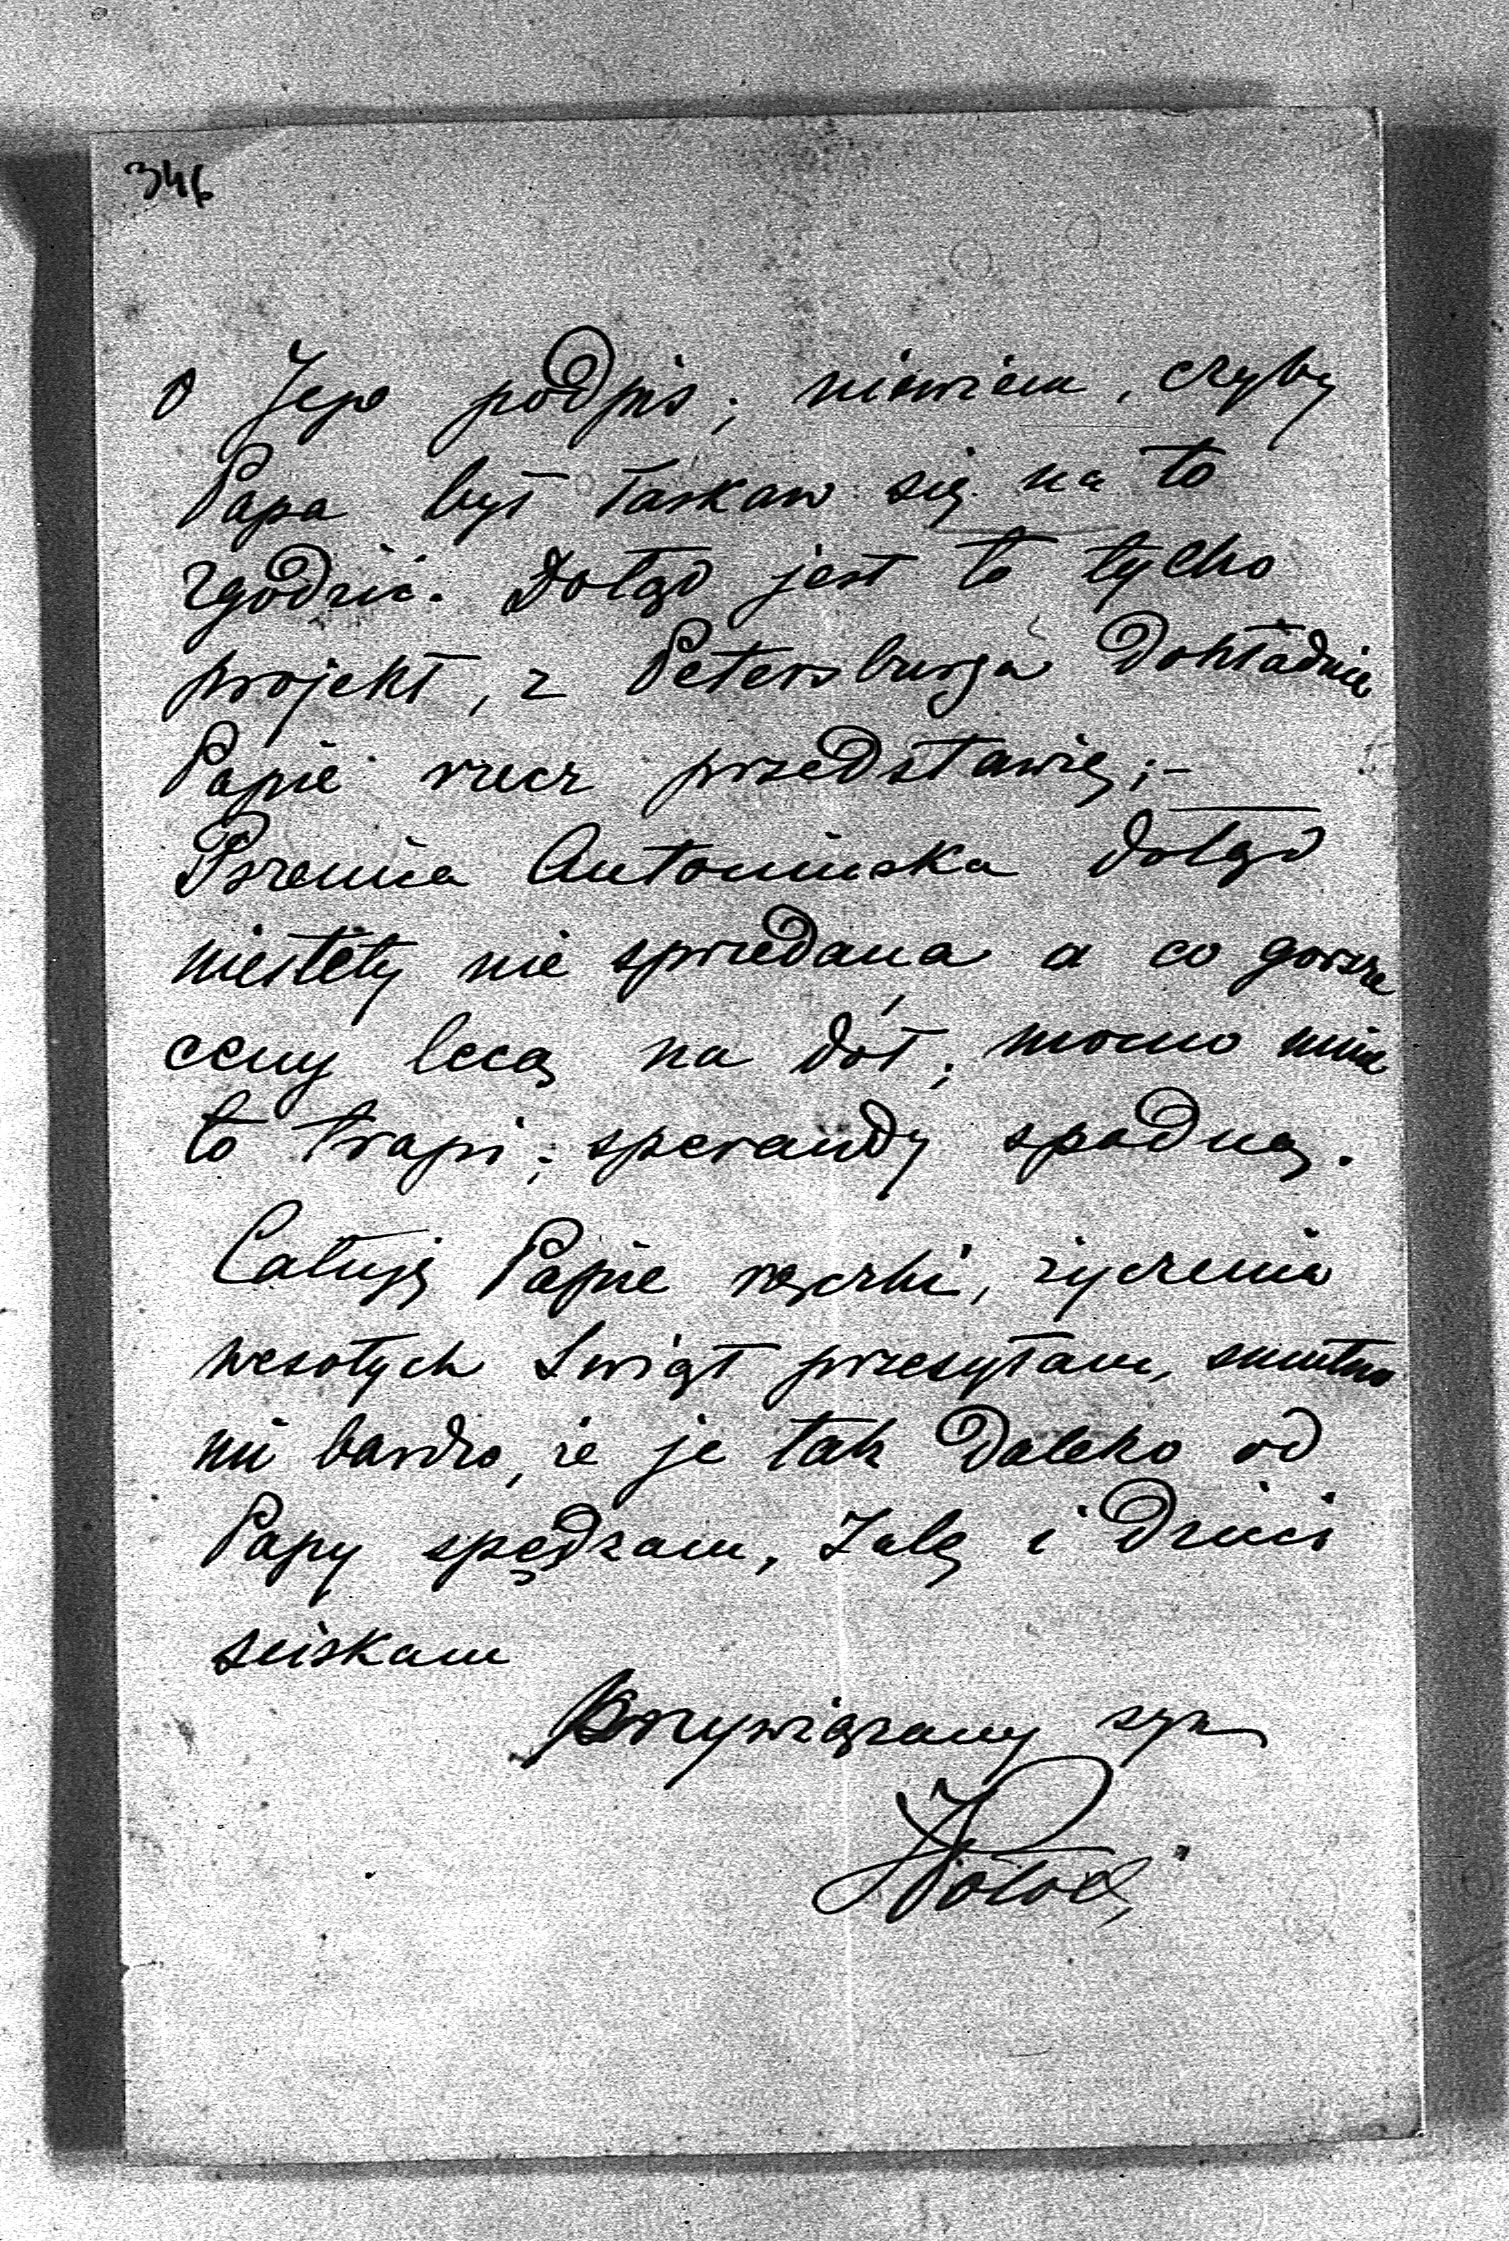 346
o Jego podpis; niewiem, czyby
Papa był łaskaw się na to
zgodzić. Dotąd jest to tylko
projekt, z Petersburga dokładnie
Papie rzecz przedstawię;-
Pszenica Antonińska dotąd
niestety nie sprzedana a co gorsza
ceny lecą na dół; mocno mnie
to trapi; sperandy spadną.
Całuję Papie rączki, życzenia
wesołych Świąt przesyłam, smutno
mi bardzo, że je tak daleko od
Papy spędzam, Zalę i Dzieci
sciskam
przywiązany syn
JPotocki